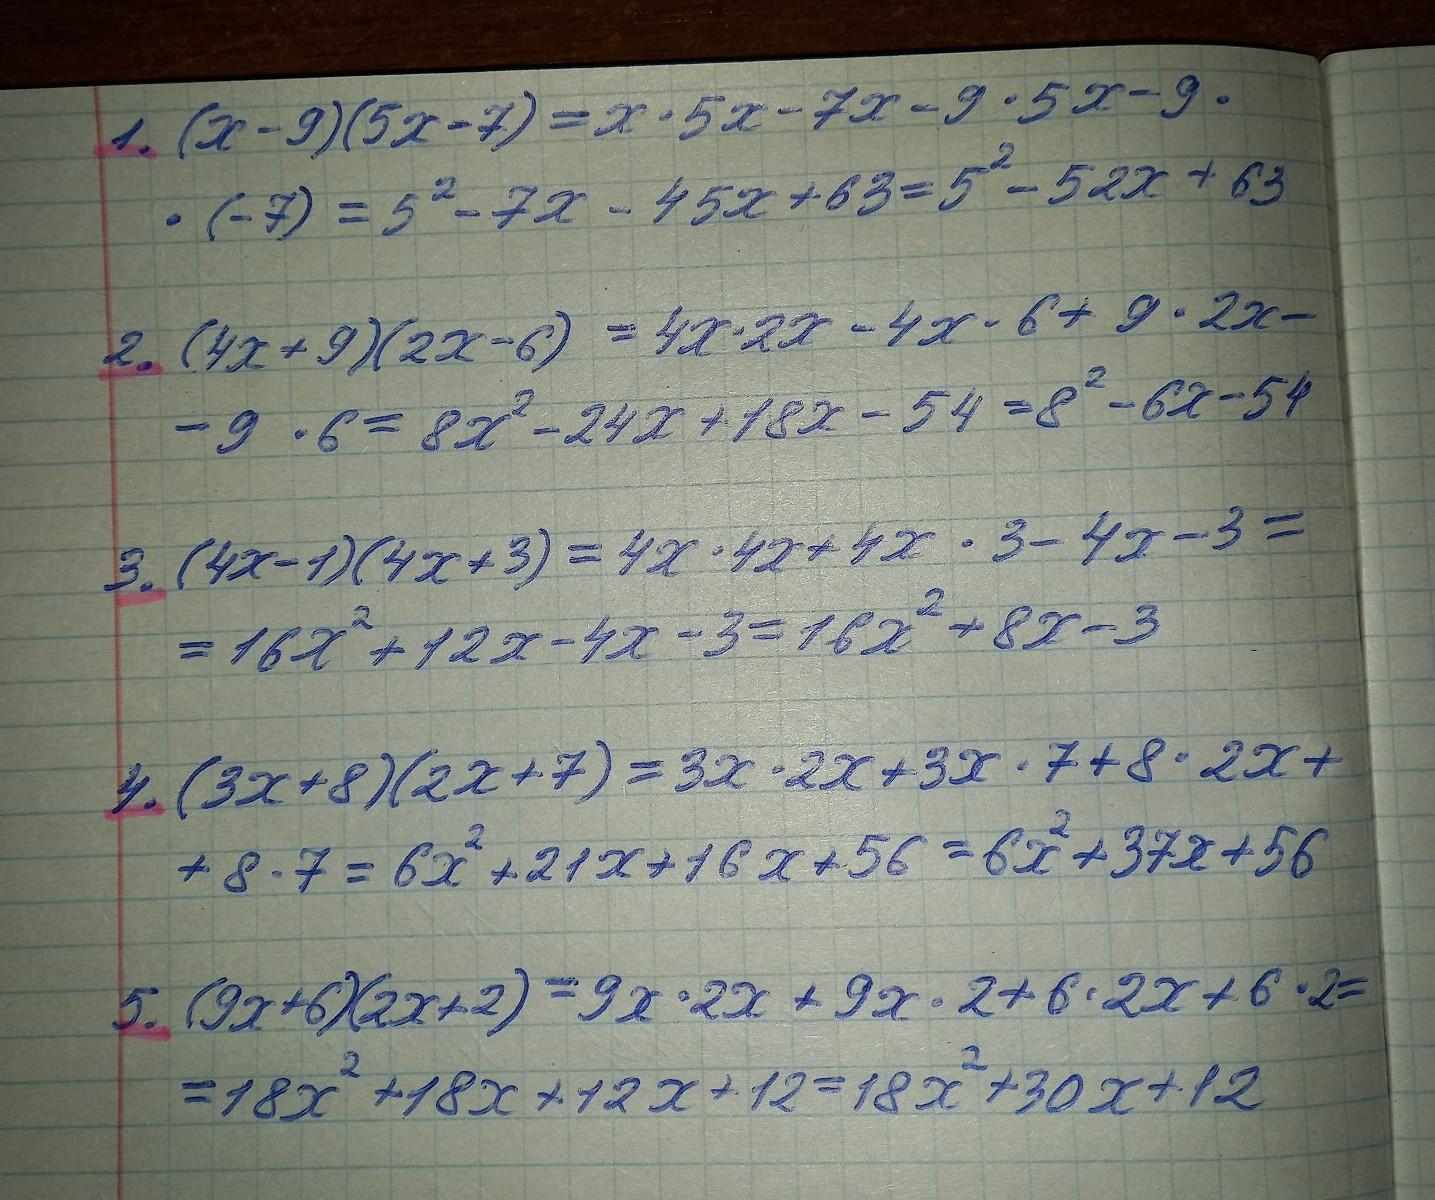 1. (x-9)(5x-7)=x·5x-7x-9·5x-9·
·(-7)=5²-7x-45x+63=5²-52x+63
2. (4x+9)(2x-6)=4x·2x-4x·6+9·2x-
-9·6=8x²-24x+18x-54=8²-6x-54
3. (4x-1)(4x+3)=4x·4x+4x·3-4x-3=
=16x²+12x-4x-3=16x²+8x-3
4. (3x+8)(2x+7)=3x·2x+3x·7+8·2x+
+8·7=6x²+21x+16x+56=6x²+37x+56
5. (9x+6)(2x+2)=9x·2x+9x·2+6·2x+6·2=
=18x²+18x+12x+12=18x²+30x+12